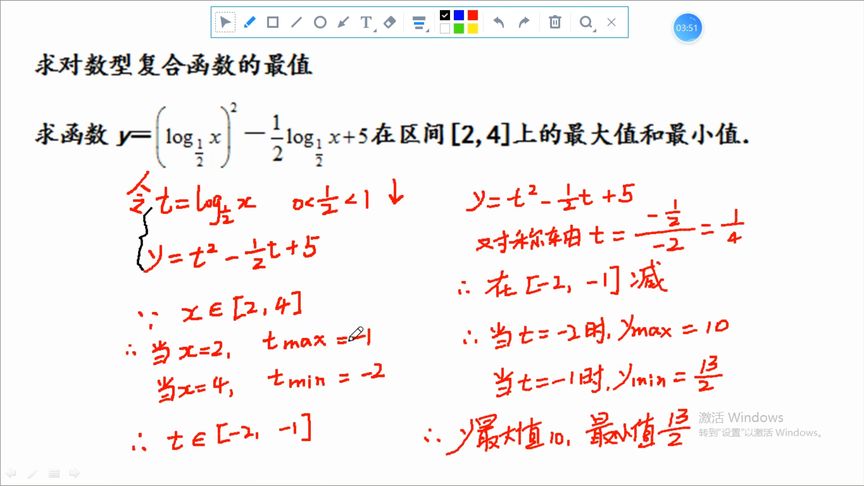 03:51
求对数型复合函数的最值
求函数 y=(log_{1/2} x)^2 - 1/2 log_{1/2} x+5在区间[2,4]上的最大值和最小值.
令 t = log_{1/2} x 0<1/2<1 ↓
y = t² - 1/2 t + 5
∵ x ∈ [2, 4]
∴ 当 x=2, t max = -1
当 x=4, t min = -2
∴ t ∈ [-2, -1]
y = t² - 1/2 t + 5
对称轴 t = (-1/2)/(-2) = 1/4
∴ 在 [-2, -1] 减
∴ 当 t = -2 时, ymax = 10
当 t = -1 时, ymin = 13/2
∴ y最大值 10, 最小值 13/2
激活 Windows
转到"设置"以激活 Windows。